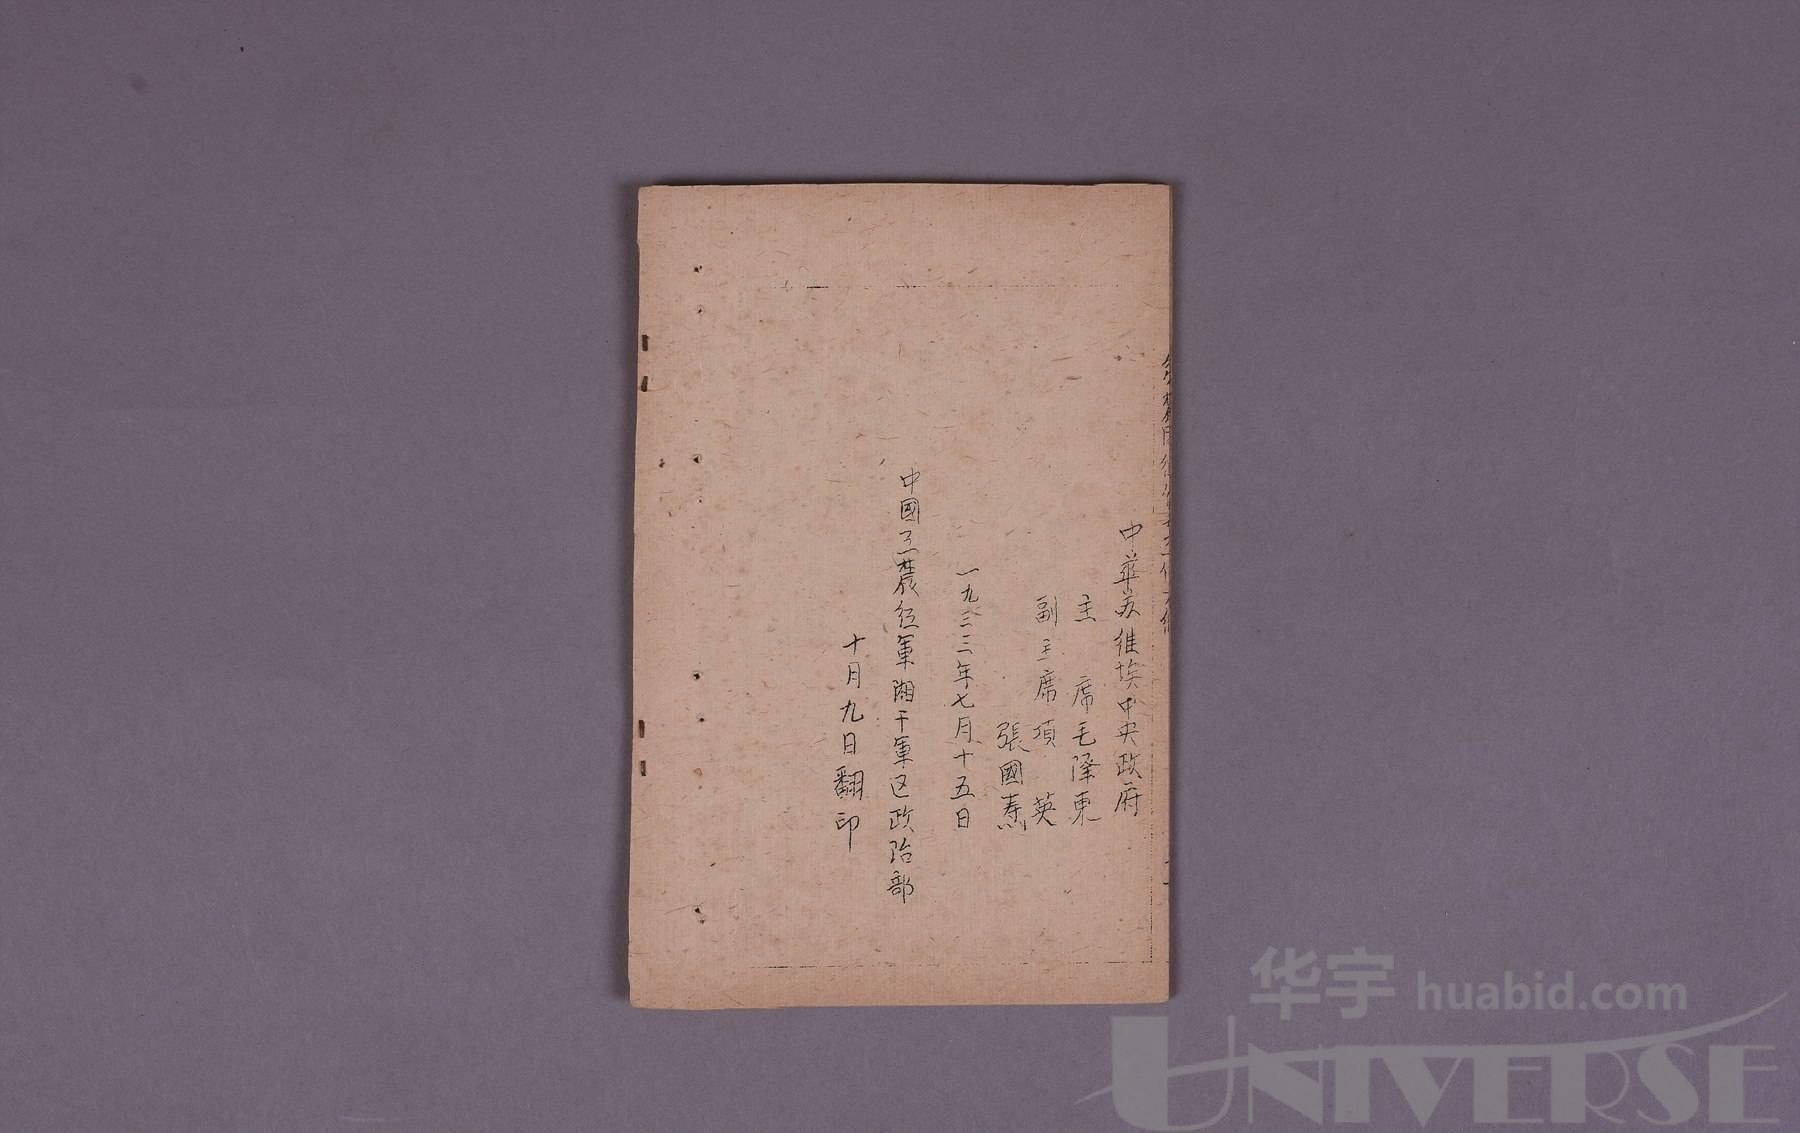 中華苏維埃中央政府
主 席毛澤東
副主席項 英
張國燾
一九三三年七月十五日
中國工農红軍湘干軍区政治部
十月九日翻印
华宇 huabid.com
UNIVERSE